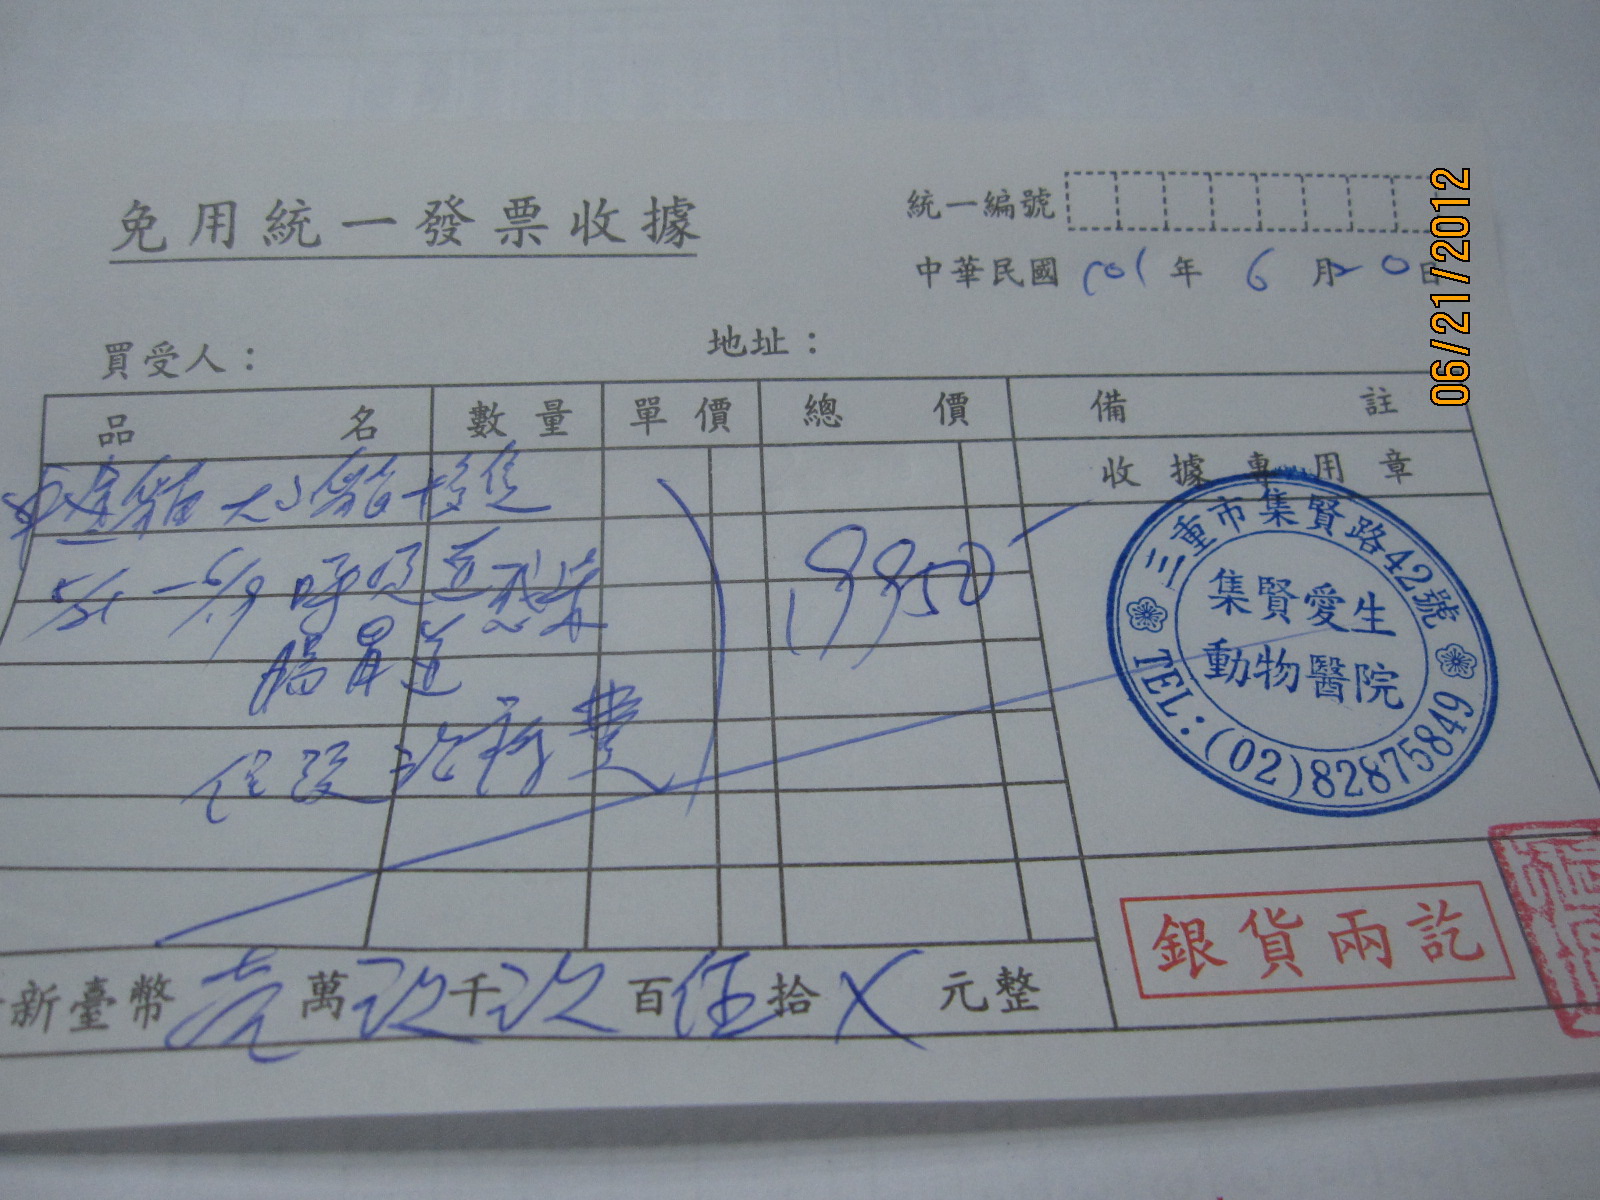 免用統一發票收據
統一編號
中華民國 101 年 6 月 20 日
06/21/2012
買受人：
地址：
品名 數量 單價 總價 備註
收據專用章
大小貓
5/21 - 6/19 呼吸道感染
19950
腸胃道
住院治療費
三重市集賢路42號
集賢愛生
動物醫院
TEL:(02)82875849
新臺幣 壹 萬 玖 千 玖 百 伍 拾 X 元整
銀貨兩訖